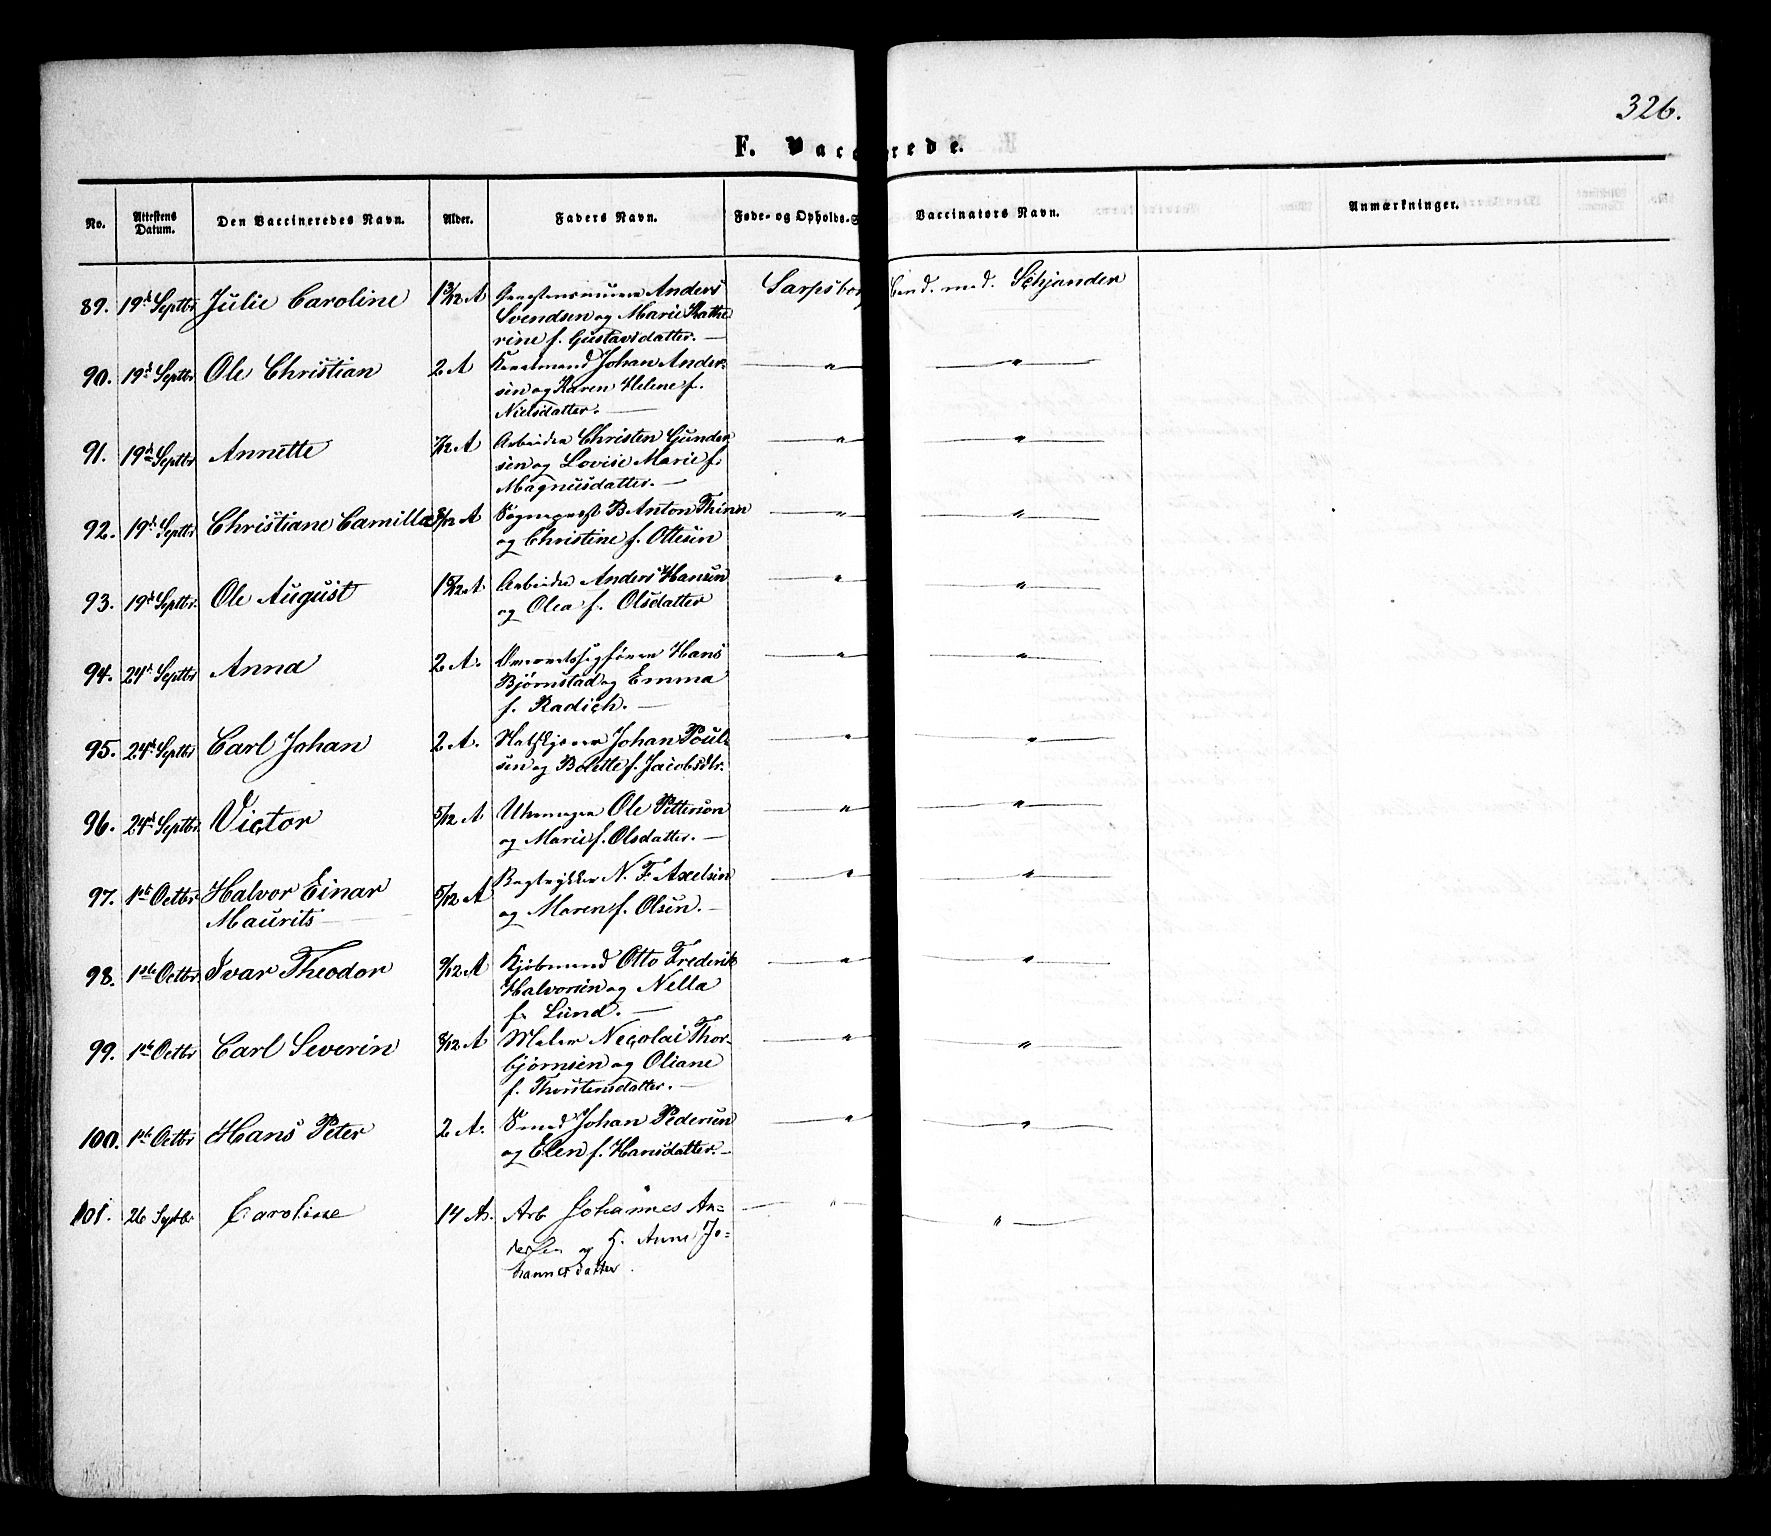 326.
F. Vacc rede.
No. Attestens Datum. Den Vaccineredes Navn. Alder. Faders Navn. Føde- og Opholds-S Vaccinators Navn. Anmærkninger.
89. 19de Septbr Julie Caroline Anders Sarpsborg Cand. med. Schjander
Svendsen og Marie Kathe
rine f. Gustavsdatter. —
90. 19de Septbr Ole Christian 2 A Johan Ander- — " — " —
sen og Karen Helene f.
Nielsdatter. —
91. 19de Septbr Annette 7/12 A Arbeider Christen Gunder — " — " —
sen og Lovise Marie f.
Magnusdatter. —
92. 19de Septbr Christiane Camilla 8/12 A Sognepræst B Anton Thinn — " — " —
og Christine f. Ottesen
93. 19de Septbr. Ole August Arbeider Anders Hansen — " — " —
og Olea f. Olsdatter
94. 24de Septbr Anna 2 A. Overretssagfører Hans — " — " —
Bjørnstad og Emma
f. Radich. —
95. 24de Septbr Carl Johan 2 A. Johan Poul- — " — " —
sen og Bolette f. Jacobsdtr.
96. 24de Septbr Victor 5/12 A Uhrmager Ole Petterson — " — " —
og Marie f. Olsdatter. —
97. 1ste Octbr Halvor Einar 5/12 A Bogtrykker N. F. Axelsen — " — " —
Maurits — og Maren f. Olsen. —
98. 1ste Octbr. Ivar Theodor 9/12 A Kjøbmand Otto Frederik — " — " —
Halvorsen og Nella
f. Lund. —
99. 1ste Octbr Carl Severin 8/12 A Maler Necolai Thor- — " — " —
bjørnsen og Oliane
f. Thorstensdatter. —
100. 1ste Octbr Hans Peter 2 A. Smed Johan Pedersen — " — " —
og Elen f. Hansdatter. —
101. 26 Septbr Caroline 14 A. Arb Johannes An- — " — " —
dersen og H. Anne Jo-
hannesdatter.